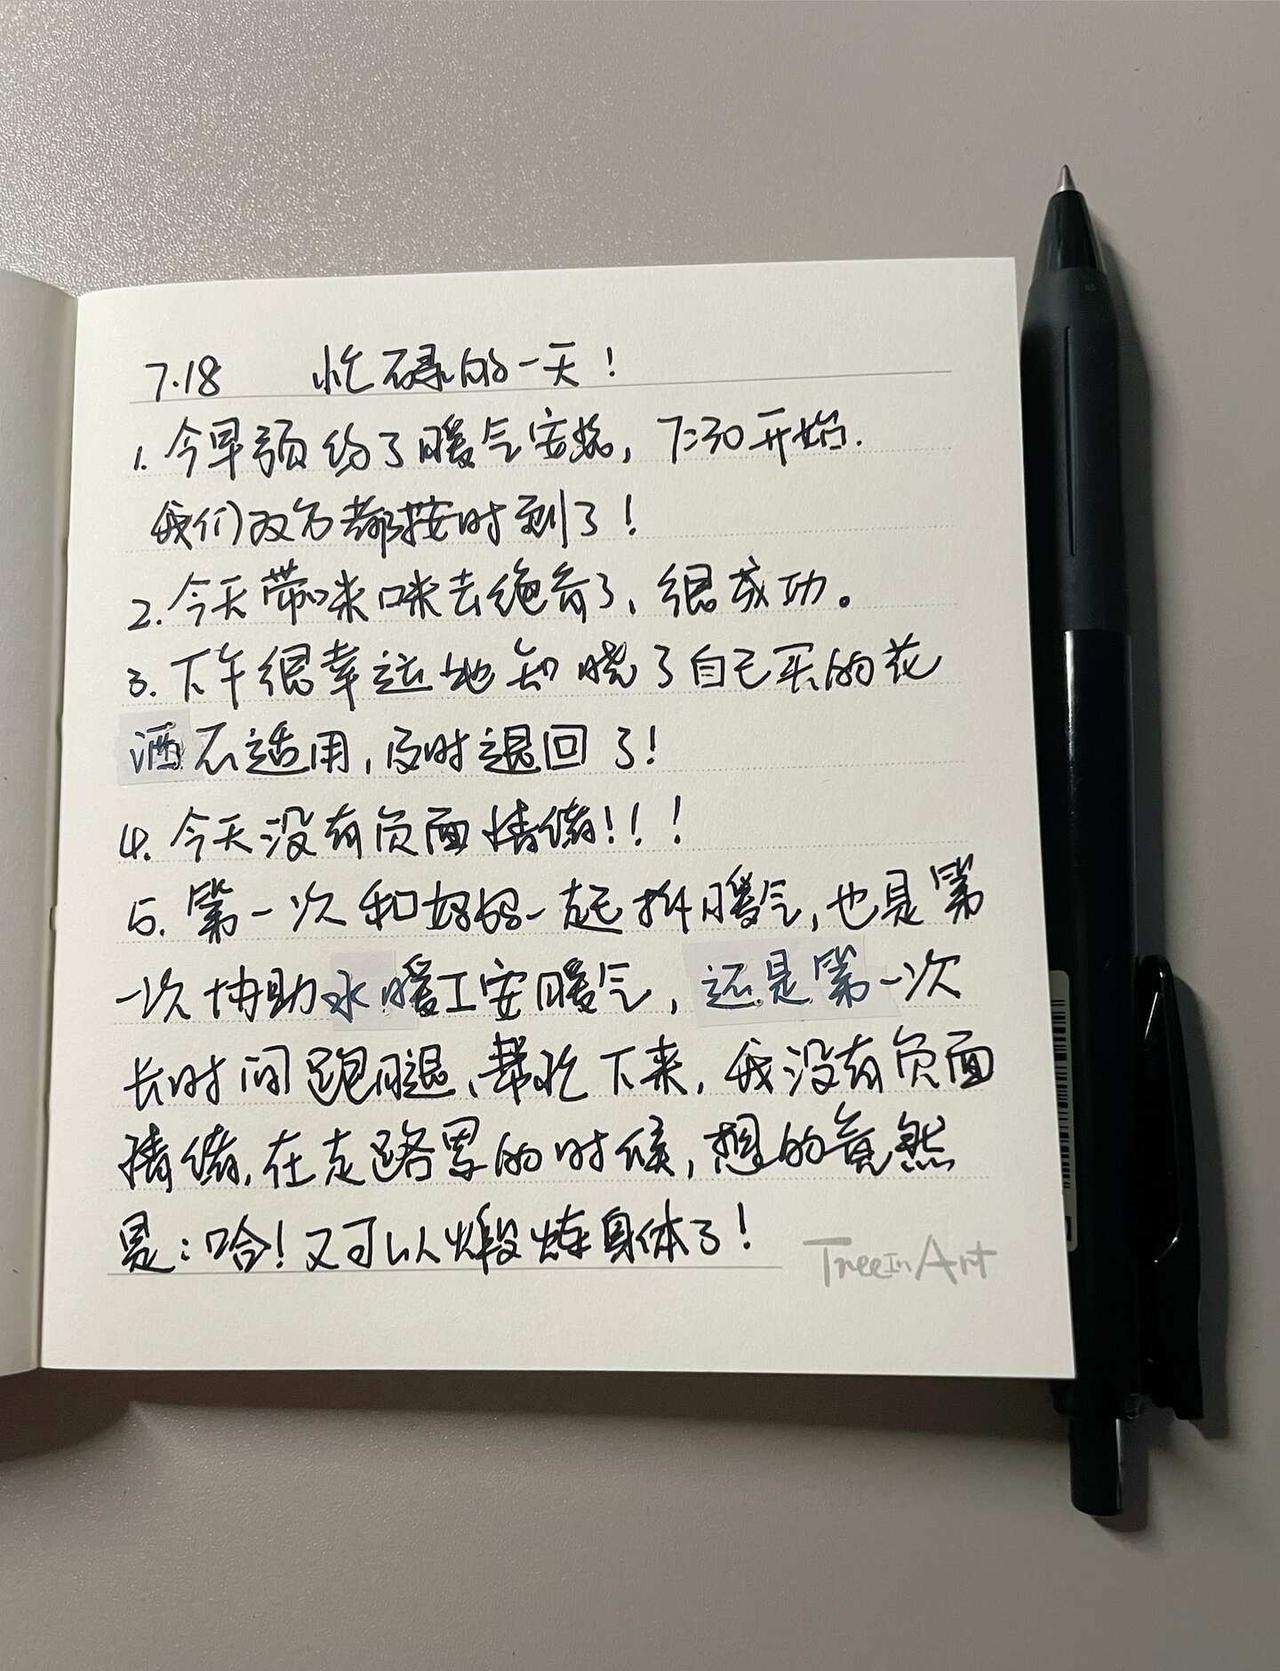 7.18 忙碌的一天!
1. 今早预约了暖气安装, 7:30开始.
我们双方都按时到了!
2. 今天带咪咪去绝育了、很成功。
3. 下午很幸运地知晓了自己买的花
洒不适用, 及时退回了!
4. 今天没有负面情绪!!!
5. 第一次和妈妈一起拆暖气, 也是第
一次协助水暖工安暖气, 还是第一次
长时间跑腿、帮忙下来, 我没有负面
情绪, 在走路累的时候, 想的竟然
是: 哈! 又可以煅炼身体了!
TreeInArt